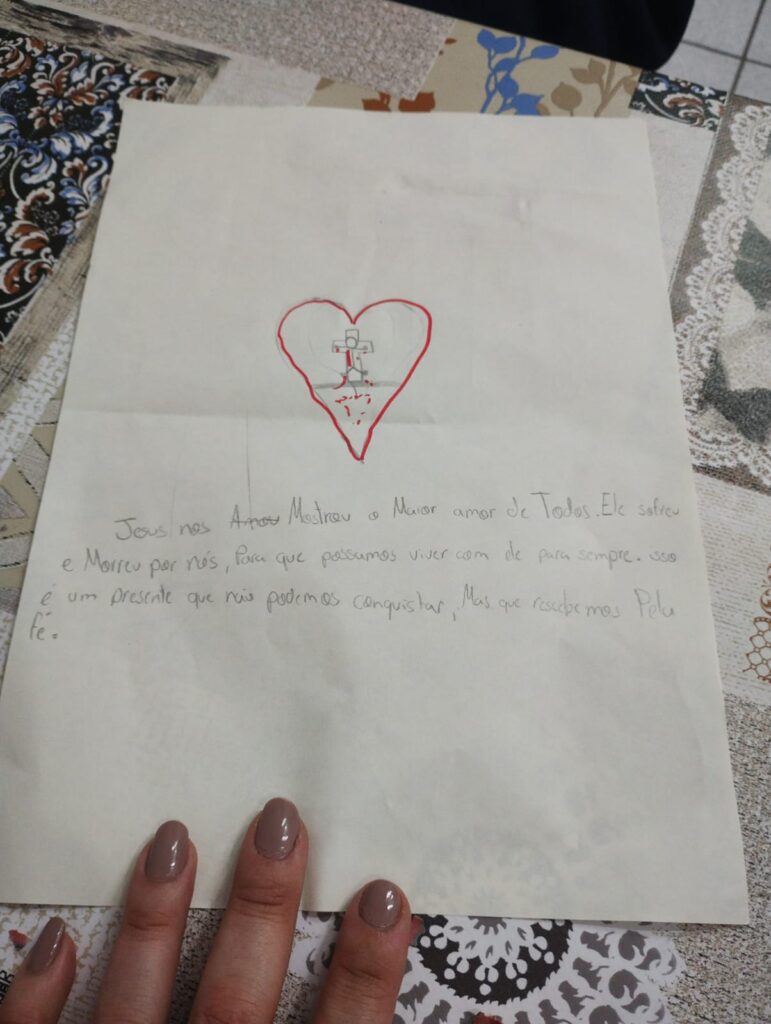 Jesus nos Amou Mostrou o Maior amor de Todos. Ele sofreu
e Morreu por nós, Para que possamos viver com ele para sempre. isso
é um presente que não podemos conquistar, Mas que resebemos Pela
fé.